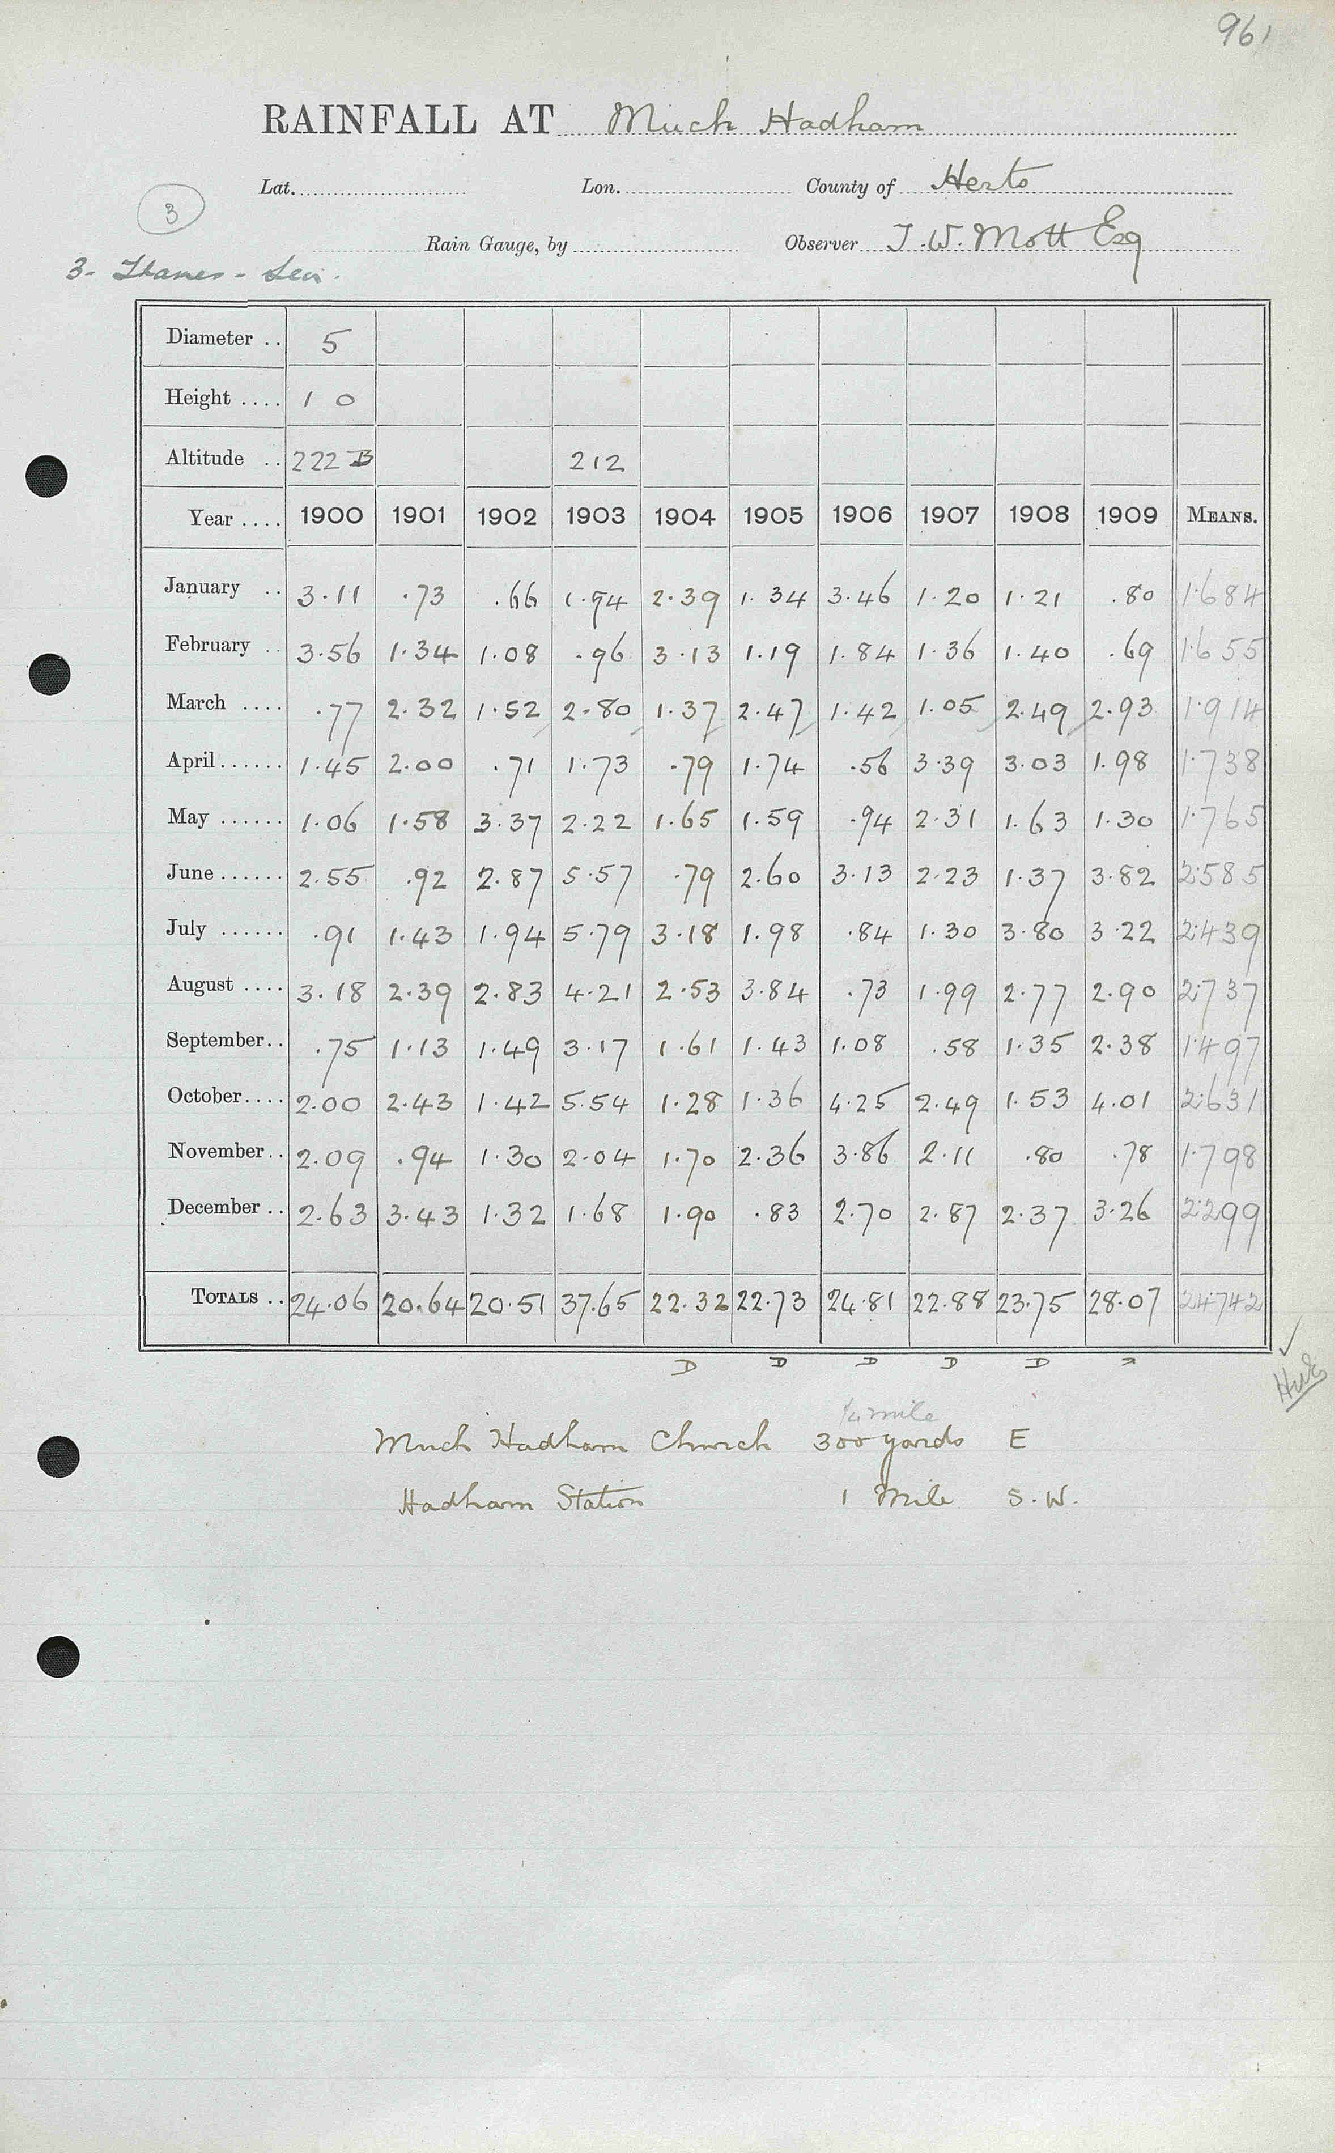 961
RAINFALL AT Much Hadham
Lat. Lon. County of Herts
3
Rain Gauge, by Observer T. W. Mott Esq
3. Thames - Lea.
Diameter .. 5
Height .... 1 0
Altitude .. 222 B 212
Year .... 1900 1901 1902 1903 1904 1905 1906 1907 1908 1909 MEANS.
January .. 3.11 .73 .66 1.94 2.39 1.34 3.46 1.20 1.21 .80 1.684
February .. 3.56 1.34 1.08 .96 3.13 1.19 1.84 1.36 1.40 .69 1.655
March .... .77 2.32 1.52 2.80 1.37 2.47 1.42 1.05 2.49 2.93 1.914
April...... 1.45 2.00 .71 1.73 .79 1.74 .56 3.39 3.03 1.98 1.738
May ...... 1.06 1.58 3.37 2.22 1.65 1.59 .94 2.31 1.63 1.30 1.765
June ...... 2.55 .92 2.87 5.57 .79 2.60 3.13 2.23 1.37 3.82 2.585
July ...... .91 1.43 1.94 5.79 3.18 1.98 .84 1.30 3.80 3.22 2.439
August .... 3.18 2.39 2.83 4.21 2.53 3.84 .73 1.99 2.77 2.90 2.737
September.. .75 1.13 1.49 3.17 1.61 1.43 1.08 .58 1.35 2.38 1.497
October.... 2.00 2.43 1.42 5.54 1.28 1.36 4.25 2.49 1.53 4.01 2.631
November.. 2.09 .94 1.30 2.04 1.70 2.36 3.86 2.11 .80 .78 1.798
December .. 2.63 3.43 1.32 1.68 1.90 .83 2.70 2.87 2.37 3.26 2.299
TOTALS .. 24.06 20.64 20.51 37.65 22.32 22.73 24.81 22.88 23.75 28.07 24.742
D D D D D
1/4 mile
Much Hadham Church 300 yards E
Hadham Station 1 Mile S.W.